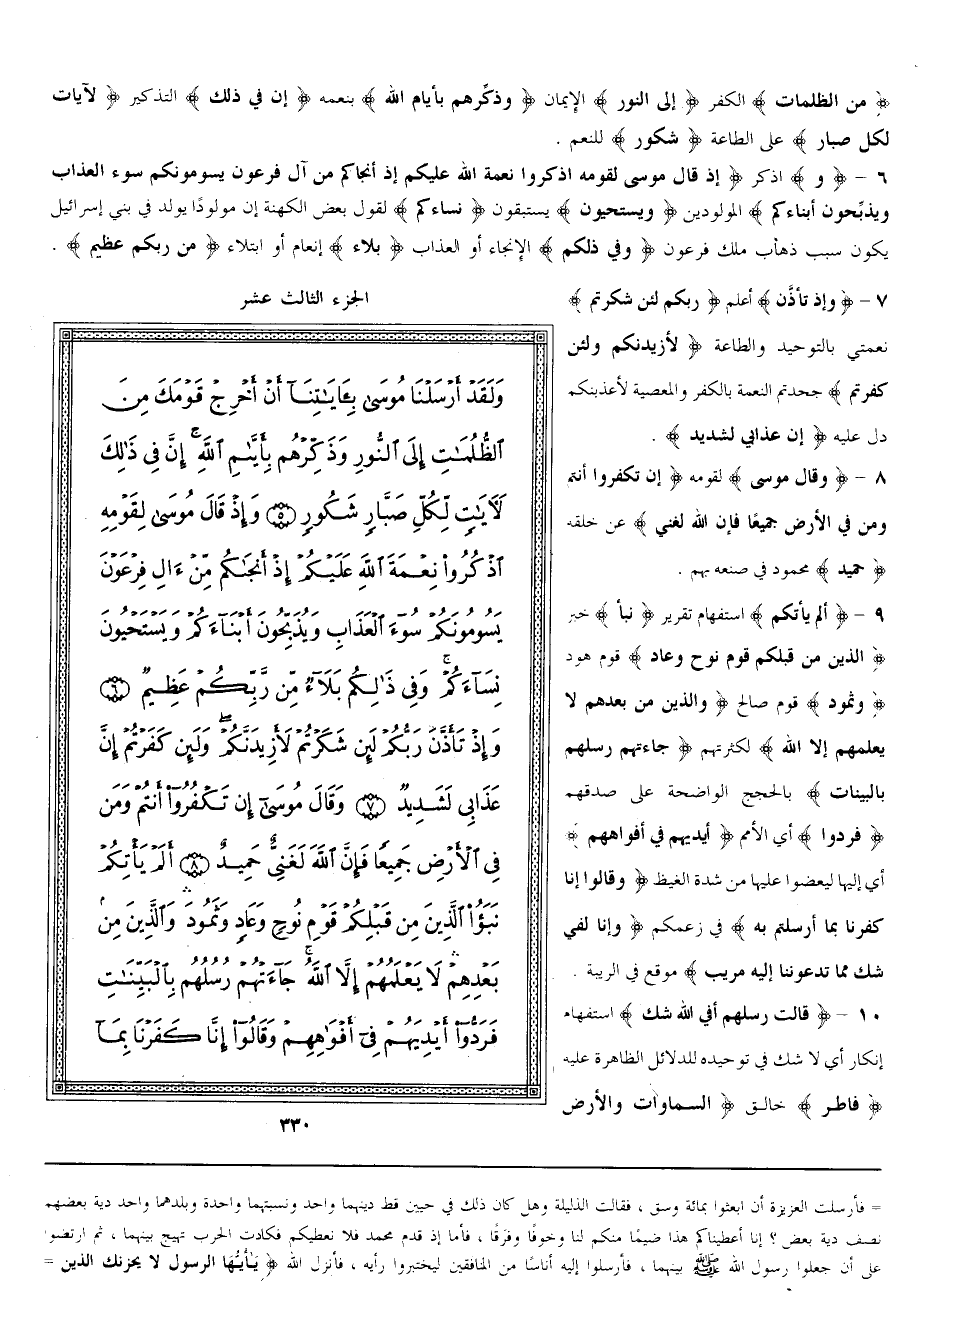 ﴿ من الظلمات ﴾ الكفر ﴿ إلى النور ﴾ الإيمان ﴿ وذكِّرهم بأيام الله ﴾ بنعمه ﴿ إن في ذلك ﴾ التذكير ﴿ لآيات
لكل صبار ﴾ على الطاعة ﴿ شكور ﴾ للنعم .
٦ – ﴿ و ﴾ اذكر ﴿ إذ قال موسى لقومه اذكروا نعمة الله عليكم إذ أنجاكم من آل فرعون يسومونكم سوء العذاب
ويذبِّحون أبناءكم ﴾ المولودين ﴿ ويستحيون ﴾ يستبقون ﴿ نساءكم ﴾ لقول بعض الكهنة إن مولودًا يولد في بني إسرائيل
يكون سبب ذهاب ملك فرعون ﴿ وفي ذلكم ﴾ الإنجاء أو العذاب ﴿ بلاء ﴾ إنعام أو ابتلاء ﴿ من ربكم عظيم ﴾ .
٧ – ﴿ وإذ تأذَّن ﴾ أعلم ﴿ ربكم لئن شكرتم ﴾
نعمتي بالتوحيد والطاعة ﴿ لأزيدنكم ولئن
كفرتم ﴾ جحدتم النعمة بالكفر والمعصية لأعذبنكم
دل عليه ﴿ إن عذابي لشديد ﴾ .
٨ – ﴿ وقال موسى ﴾ لقومه ﴿ إن تكفروا أنتم
ومن في الأرض جميعًا فإن الله لغني ﴾ عن خلقه
﴿ حميد ﴾ محمود في صنعه بهم .
٩ – ﴿ ألم يأتكم ﴾ استفهام تقرير ﴿ نبأ ﴾ خبر
﴿ الذين من قبلكم قوم نوح وعاد ﴾ قوم هود
﴿ وثمود ﴾ قوم صالح ﴿ والذين من بعدهم لا
يعلمهم إلا الله ﴾ لكثرتهم ﴿ جاءتهم رسلهم
بالبينات ﴾ بالحجج الواضحة على صدقهم
﴿ فردوا ﴾ أي الأمم ﴿ أيديهم في أفواههم ﴾
أي إليها ليعضوا عليها من شدة الغيظ ﴿ وقالوا إنا
كفرنا بما أرسلتم به ﴾ في زعمكم ﴿ وإنا لفي
شك مما تدعوننا إليه مريب ﴾ موقع في الريبة .
١٠ – ﴿ قالت رسلهم أفي الله شك ﴾ استفهام
إنكار أي لا شك في توحيده للدلائل الظاهرة عليه
﴿ فاطر ﴾ خالق ﴿ السماوات والأرض
الجزء الثالث عشر
وَلَقَدْ أَرْسَلْنَا مُوسَىٰ بِـَٔايَـٰتِنَآ أَنْ أَخْرِجْ قَوْمَكَ مِنَ
ٱلظُّلُمَـٰتِ إِلَى ٱلنُّورِ وَذَكِّرْهُم بِأَيَّىٰمِ ٱللَّهِ ۚ إِنَّ فِى ذَٰلِكَ
لَـَٔايَـٰتٍ لِّكُلِّ صَبَّارٍ شَكُورٍ ﴿٥﴾ وَإِذْ قَالَ مُوسَىٰ لِقَوْمِهِ
ٱذْكُرُوا۟ نِعْمَةَ ٱللَّهِ عَلَيْكُمْ إِذْ أَنجَىٰكُم مِّنْ ءَالِ فِرْعَوْنَ
يَسُومُونَكُمْ سُوٓءَ ٱلْعَذَابِ وَيُذَبِّحُونَ أَبْنَآءَكُمْ وَيَسْتَحْيُونَ
نِسَآءَكُمْ ۚ وَفِى ذَٰلِكُم بَلَآءٌ مِّن رَّبِّكُمْ عَظِيمٌ ﴿٦﴾
وَإِذْ تَأَذَّنَ رَبُّكُمْ لَئِن شَكَرْتُمْ لَأَزِيدَنَّكُمْ ۖ وَلَئِن كَفَرْتُمْ إِنَّ
عَذَابِى لَشَدِيدٌ ﴿٧﴾ وَقَالَ مُوسَىٰٓ إِن تَكْفُرُوٓا۟ أَنتُمْ وَمَن
فِى ٱلْأَرْضِ جَمِيعًا فَإِنَّ ٱللَّهَ لَغَنِىٌّ حَمِيدٌ ﴿٨﴾ أَلَمْ يَأْتِكُمْ
نَبَؤُا۟ ٱلَّذِينَ مِن قَبْلِكُمْ قَوْمِ نُوحٍ وَعَادٍ وَثَمُودَ ۛ وَٱلَّذِينَ مِنۢ
بَعْدِهِمْ ۛ لَا يَعْلَمُهُمْ إِلَّا ٱللَّهُ ۚ جَآءَتْهُمْ رُسُلُهُم بِٱلْبَيِّنَـٰتِ
فَرَدُّوٓا۟ أَيْدِيَهُمْ فِىٓ أَفْوَٰهِهِمْ وَقَالُوٓا۟ إِنَّا كَفَرْنَا بِمَآ
٣٣٠
= فأرسلت العزيزة أن ابعثوا بمائة وسق ، فقالت الذليلة وهل كان ذلك في حيين قط دينهما واحد ونسبتهما واحدة وبلدهما واحد دية بعضهم
نصف دية بعض ؟ إنا أعطيناكم هذا ضيمًا منكم لنا وخوفًا وفرقًا ، فأما إذ قدم محمد فلا نعطيكم فكادت الحرب تهيج بينهما ، ثم ارتضوا
على أن جعلوا رسول الله ﷺ بينهما ، فأرسلوا إليه أناسًا من المنافقين ليختبروا رأيه ، فأنزل الله ﴿ يَـٰأيُّها الرسول لا يحزنك الذين =